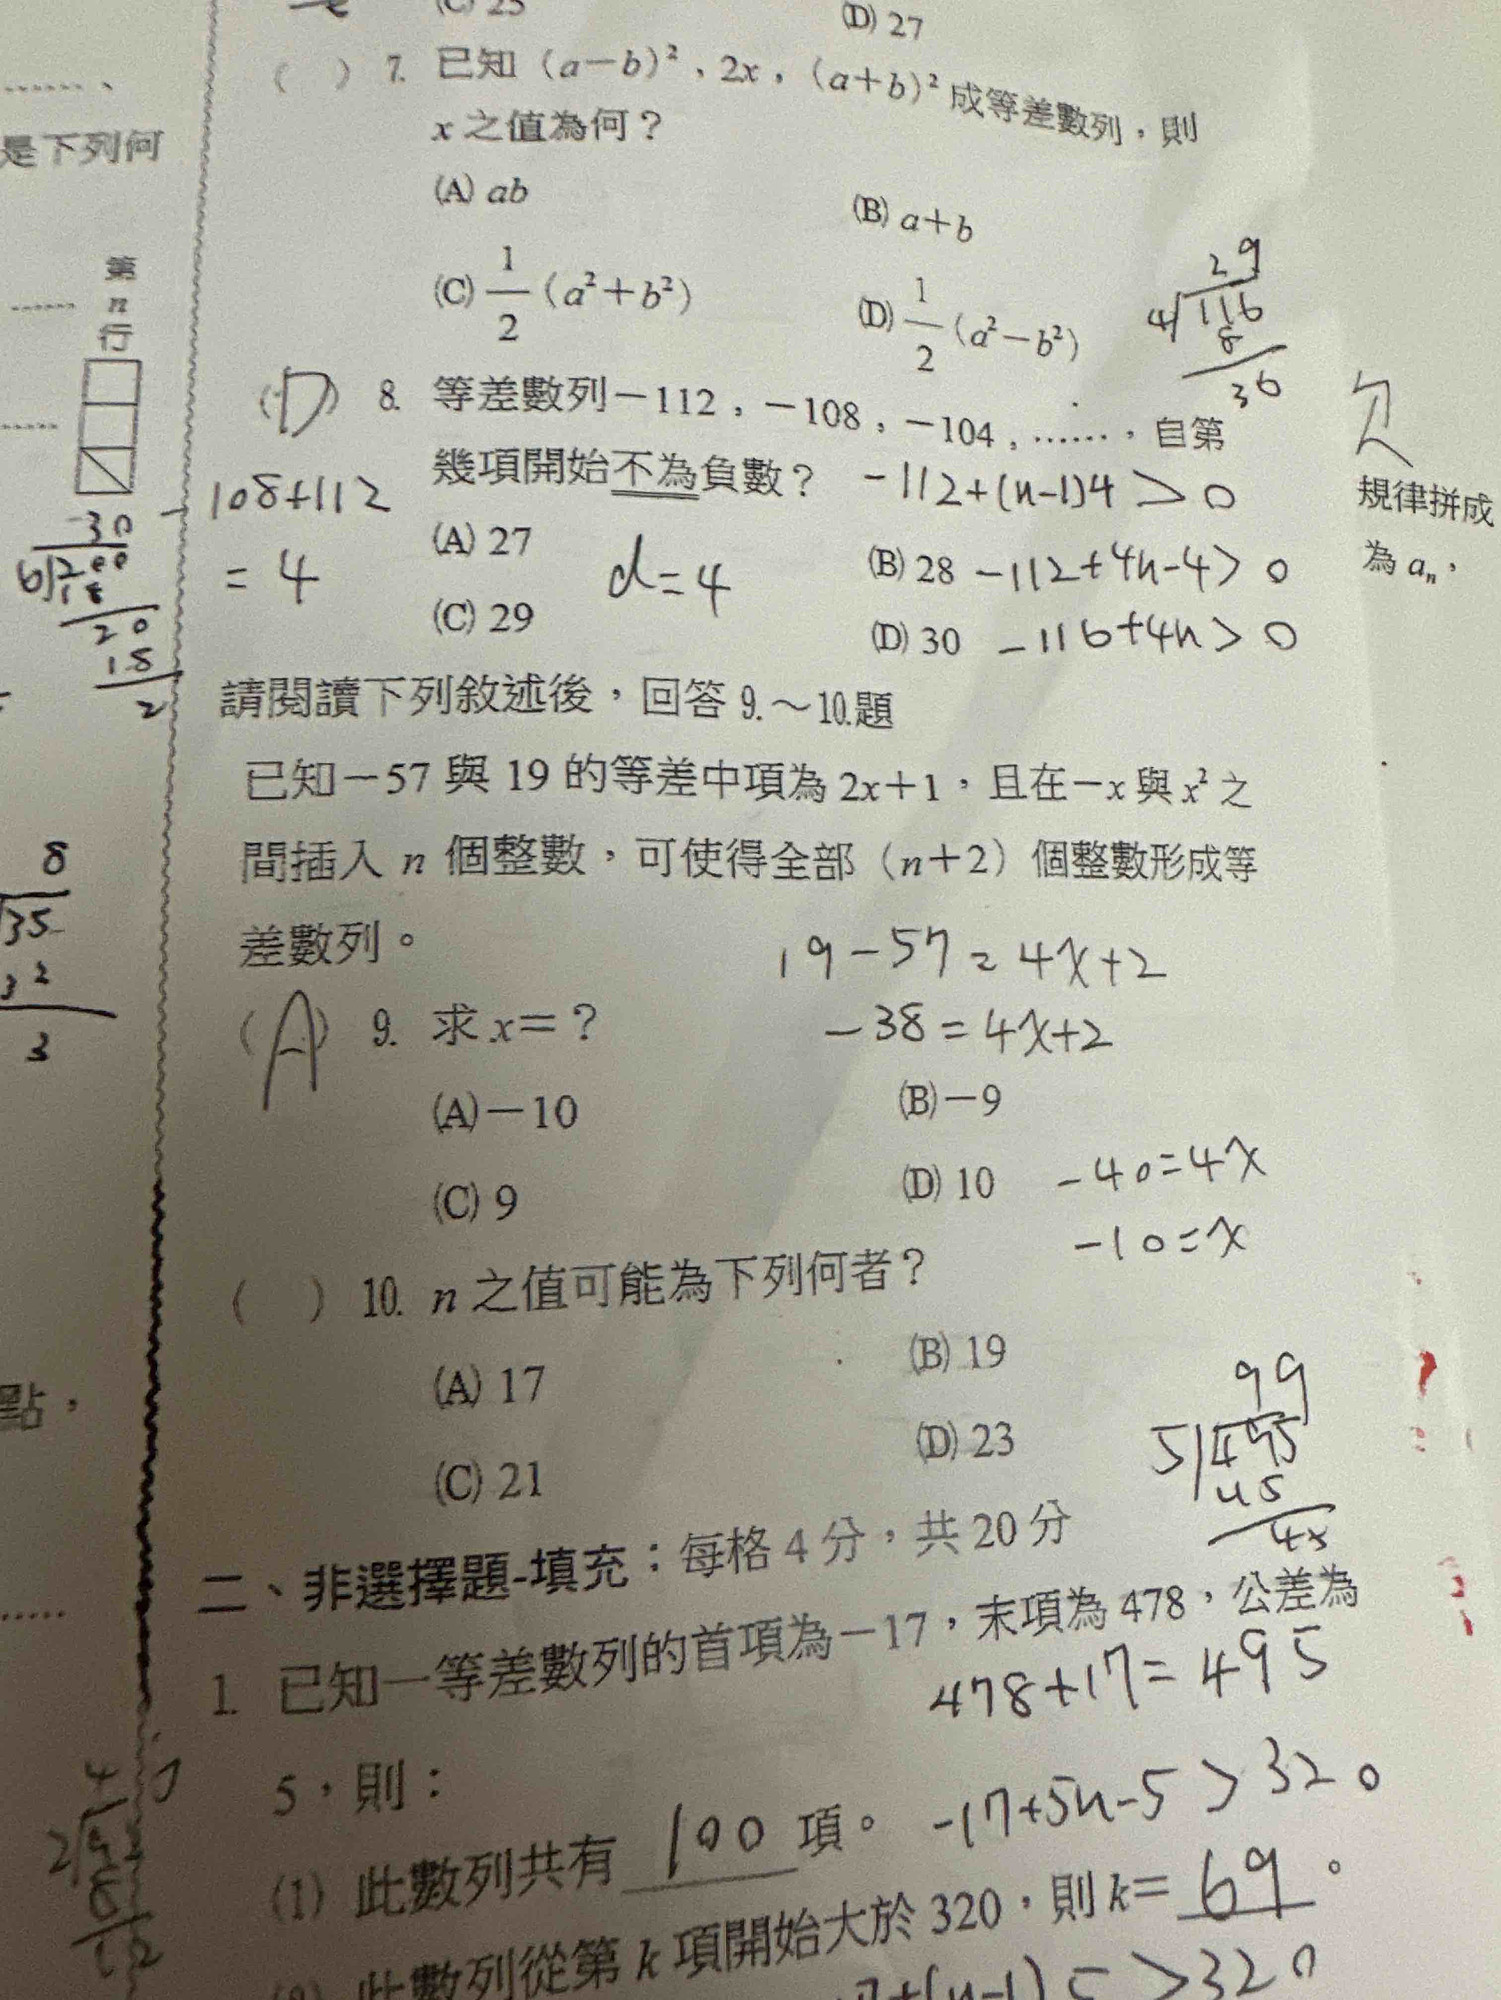 (C) 25
(D) 27
( ) 7. 已知（a－b）²，2x，（a＋b）²成等差數列，則
x 之值為何？
(A) ab
(B) a＋b
(C) 1/2（a²＋b²）
(D) 1/2（a²－b²）
29
4 116
8
36
(D) 8. 等差數列－112，－108，－104，……，自第
幾項開始不為負數？
-112+(n-1)4 > 0
(A) 27
(B) 28
-112+4n-4 > 0
(C) 29
(D) 30
-116+4n > 0
-108+112
= 4
d=4
請閱讀下列敘述後，回答 9.～10.題
已知－57 與 19 的等差中項為 2x＋1，且在－x 與 x² 之
間插入 n 個整數，可使得全部（n＋2）個整數形成等
差數列。
19-57=4x+2
-38=4x+2
(A) 9. 求 x＝？
(A)－10
(B)－9
(C) 9
(D) 10
-40=4x
-10=x
( ) 10. n 之值可能為下列何者？
(A) 17
(B) 19
(C) 21
(D) 23
99
5 495
45
45
二、非選擇題-填充：每格 4 分，共 20 分
1. 已知一等差數列的首項為－17，末項為 478，公差為
478+17=495
5，則：
(1) 此數列共有 100 項。
-17+5n-5 > 320
(2) 此數列從第 k 項開始大於 320，則 k＝ 69 。
7+(n-1)5 > 320
……、
是下列何
第
n
行
……
……
30
6 200
18
20
18
2
8
35
32
3
點，
……
規律拼成
為 aₙ，